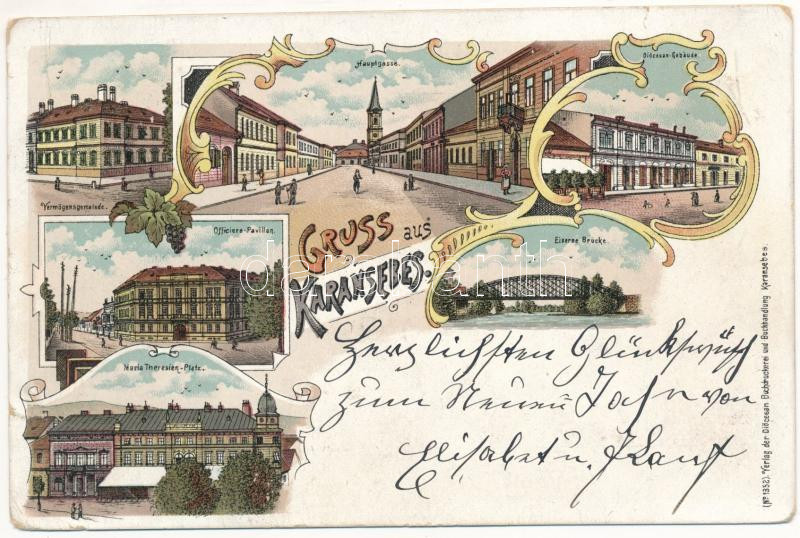 Hauptgasse.
Diöcesan-Gebäude
Vermögensgemeinde.
Officiers-Pavillon.
GRUSS aus
KARANSEBES.
Eiserne Brücke.
Maria Theresien-Platz.
darabanth
Herzlichsten Glückswüsch
zum Neuen Jahr von
Elisabet u.
(No 1352). Verlag der Diöcesan Buchdruckerei und Buchhandlung Karansebes.